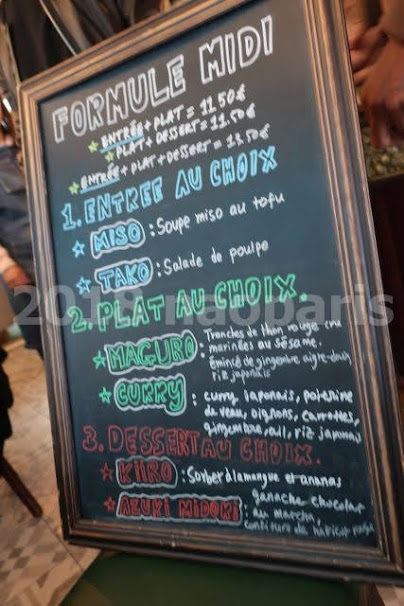 FORMULE MIDI
★ ENTRÉE + PLAT = 11.50€
★ PLAT + DESSERT = 11.50€
★ ENTRÉE + PLAT + DESSERT = 13.50€
1. ENTREE AU CHOIX
★ MISO : Soupe miso au tofu
★ TAKO : Salade de poulpe
2. PLAT AU CHOIX.
★ MAGURO : Tranches de thon rouge cru
marinées au sésame.
émincé de gingembre aigre-doux,
riz japonais
★ CURRY : curry japonais, poitrine
de veau, oignons, carottes,
gingembre, ail, riz japonais
3. DESSERT AU CHOIX.
★ KIIRO : Sorbet à la mangue et ananas
★ AZUKI MIDORI : ganache chocolat
au matcha,
confiture de haricot rouge
2018 naoparis